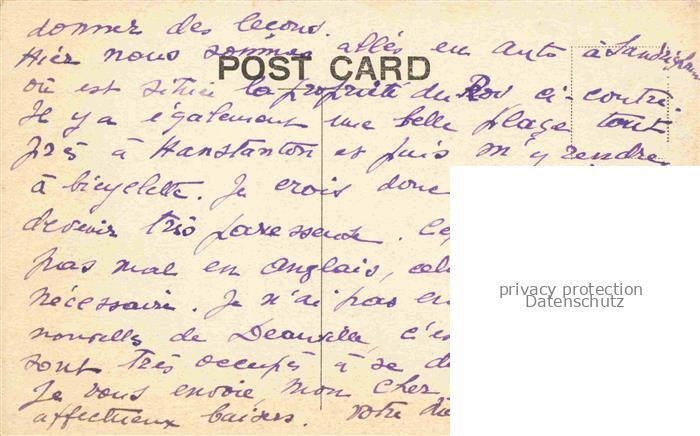 donner des leçons.
Hier nous sommes allés en auto à Sandrigham
POST CARD
où est située la propriété du Roi ci-contre.
Il y a également une belle plage tout
près à Hanstanton et puis m'y rendre
à bicyclette. Je crois donc
devenir très paresseuse.
pas mal en anglais,
nécessaire. Je n'ai pas
nouvelles de Deauville,
sont très occupés à se
Je vous envoie, mon cher
affectueux baisers. votre
privacy protection
Datenschutz